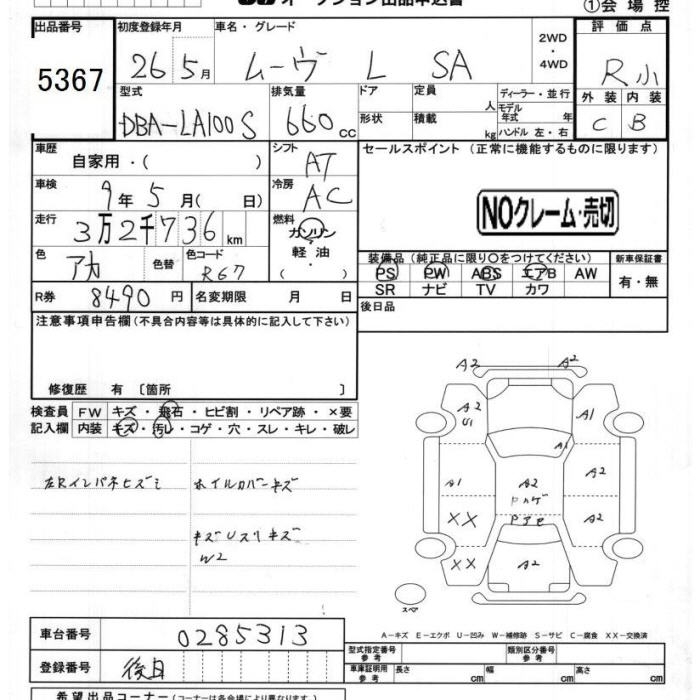 オークション出品申込書 ①会場控
出品番号 初度登録年月 車名・グレード 2WD ・ 4WD 評価点
5367 26年5月 ムーヴ L SA R小
型式 排気量 ドア 定員 人 ディーラー・並行 外装 内装
DBA-LA100S 660cc 形状 積載 kg モデル年式 年 ハンドル 左・右 C B
車歴 自家用・( ) シフト AT セールスポイント (正常に機能するものに限ります)
車検 9年5月( 日) 冷房 AC
NOクレーム・売切
走行 3万2千736km 燃料 ガソリン・軽油・
色 アカ 色替 色コード R67
装備品 (純正品に限り○をつけてください) 新車保証書
PS PW ABS エアB AW 有・無
SR ナビ TV カワ
R券 8490円 名変期限 月 日 後日品
注意事項申告欄 (不具合内容等は具体的に記入して下さい)
修復歴 有 [箇所 ]
検査員 FW キズ・飛石・ヒビ割・リペア跡・×要
記入欄 内装 キズ・汚レ・コゲ・穴・スレ・キレ・破レ
左Rインパネヒズミ ホイルカバーキズ
W2
A2 A2
A2 U1 A1
A2
A1 A2
XX A2
XX A2
スペア
A-キズ E-エクボ U-凹み W-補修跡 S-サビ C-腐食 XX-交換済
車台番号 0285313
型式指定番号 参考 類別区分番号 参考
登録番号 後日 車庫証明用 参考 長さ cm 幅 cm 高さ cm
希望出品コーナー (コーナーは各会場により異なります)